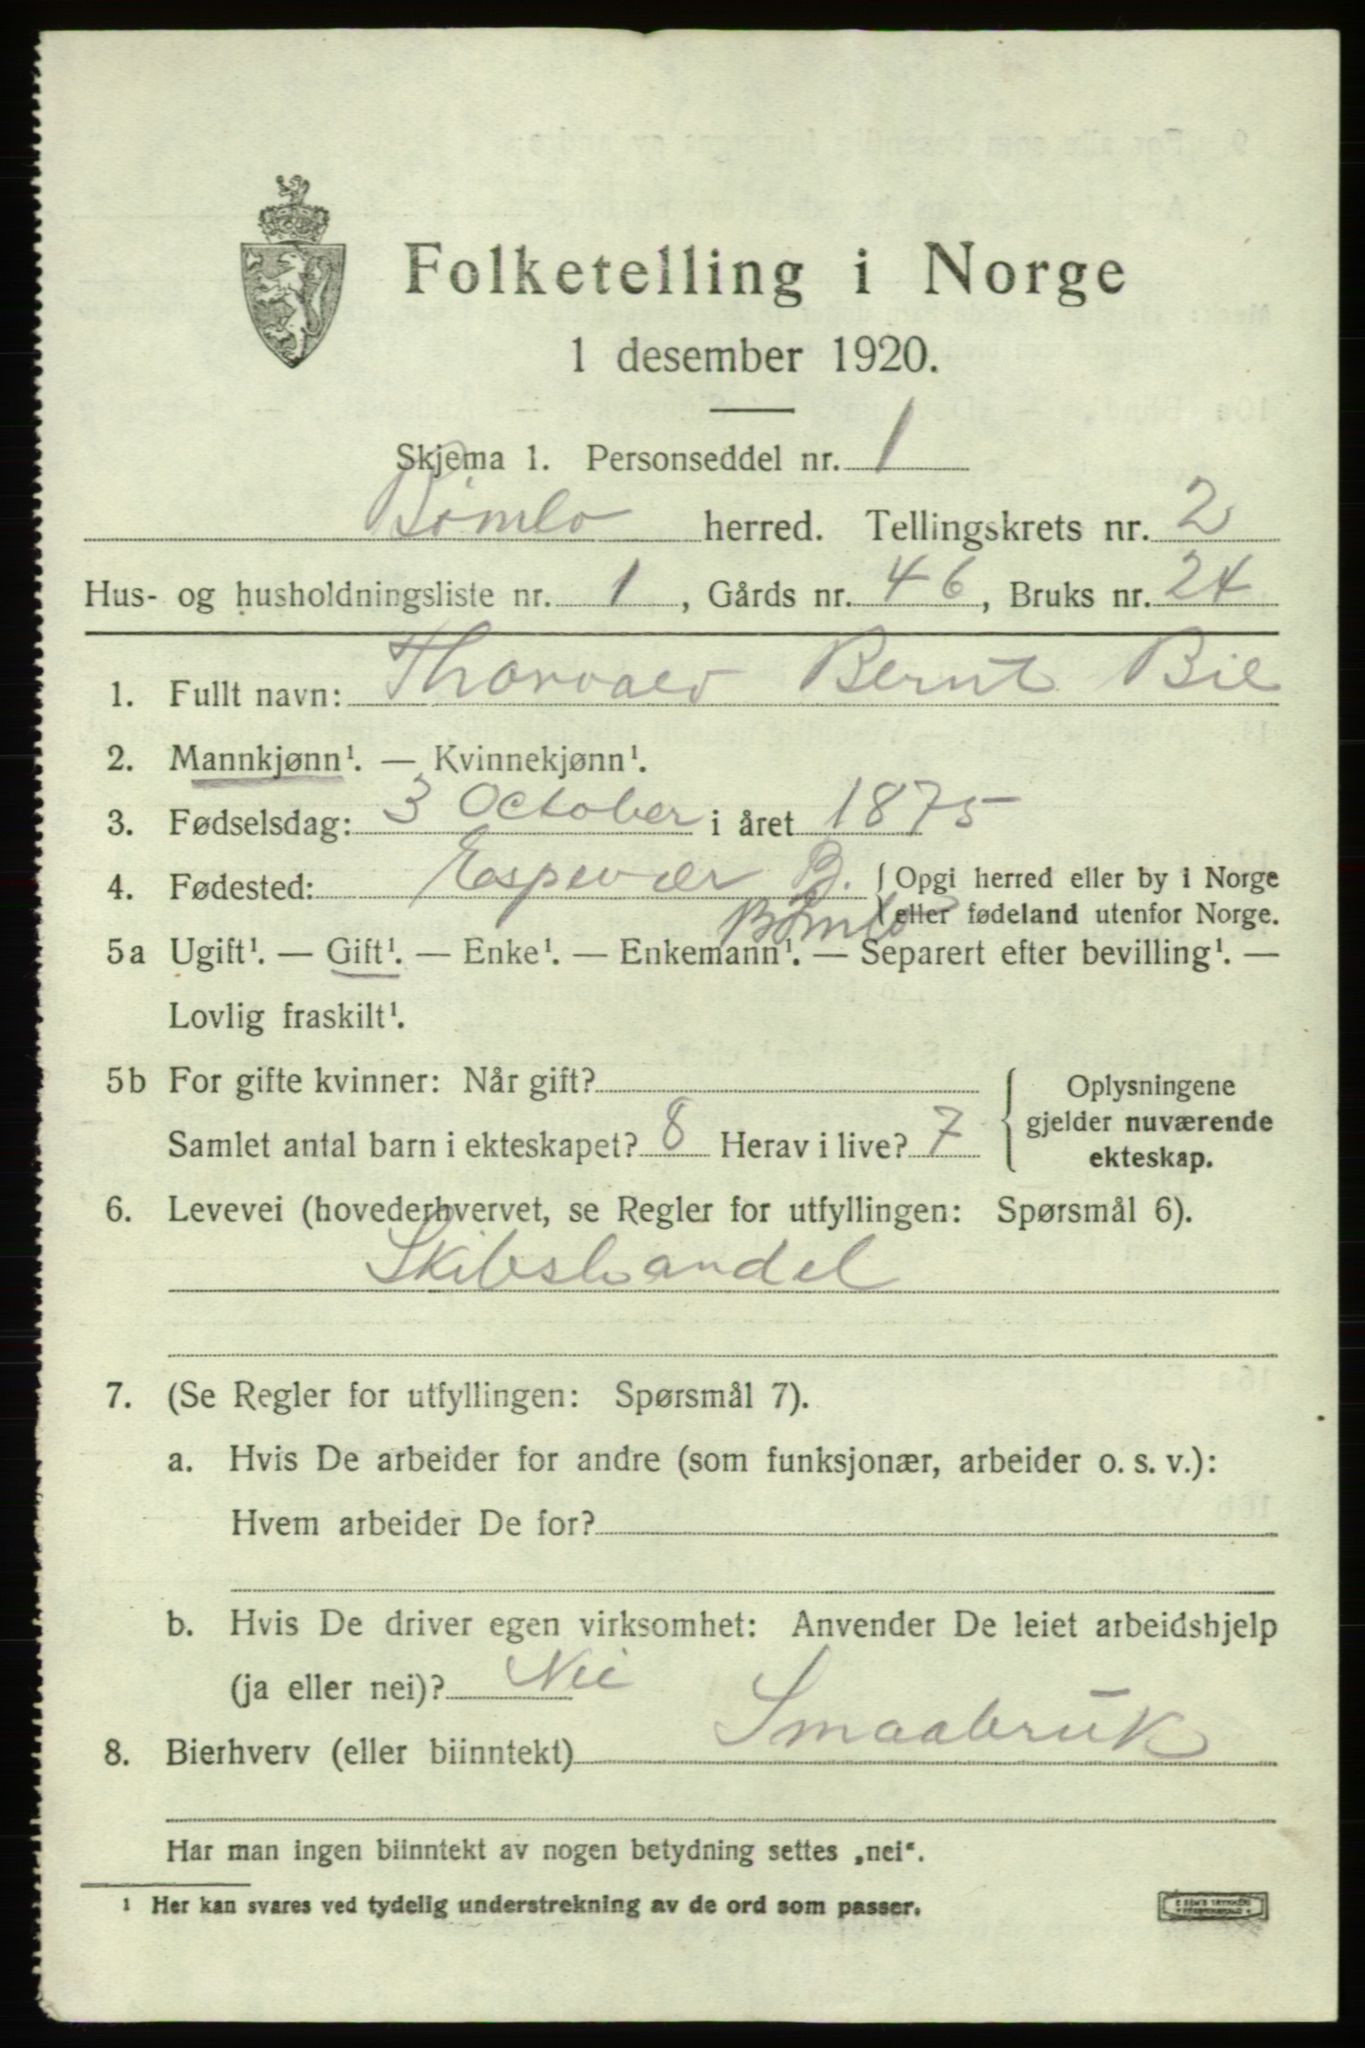 Folketelling i Norge
1 desember 1920.
Skjema 1. Personseddel nr. 1
Bømlo herred. Tellingskrets nr. 2
Hus- og husholdningsliste nr. 1, Gårds nr. 46, Bruks nr. 24
1. Fullt navn: Thorvald Bernt Bie
2. Mannkjønn¹. — Kvinnekjønn¹.
3. Fødselsdag: 3 October i året 1875
4. Fødested: Espevær B. {Opgi herred eller by i Norge
Bømlo eller fødeland utenfor Norge.
5a Ugift¹. — Gift¹. — Enke¹. — Enkemann¹. — Separert efter bevilling¹. —
Lovlig fraskilt¹.
5b For gifte kvinner: Når gift?
Samlet antal barn i ekteskapet? 8 Herav i live? 7
{Oplysningene
gjelder nuværende
ekteskap.
6. Levevei (hovederhvervet, se Regler for utfyllingen: Spørsmål 6).
Skibshandel
7. (Se Regler for utfyllingen: Spørsmål 7).
a. Hvis De arbeider for andre (som funksjonær, arbeider o. s. v.):
Hvem arbeider De for?
b. Hvis De driver egen virksomhet: Anvender De leiet arbeidshjelp
(ja eller nei)? Nei
8. Bierhverv (eller biinntekt) Smaabruk
Har man ingen biinntekt av nogen betydning settes „nei“.
¹ Her kan svares ved tydelig understrekning av de ord som passer.